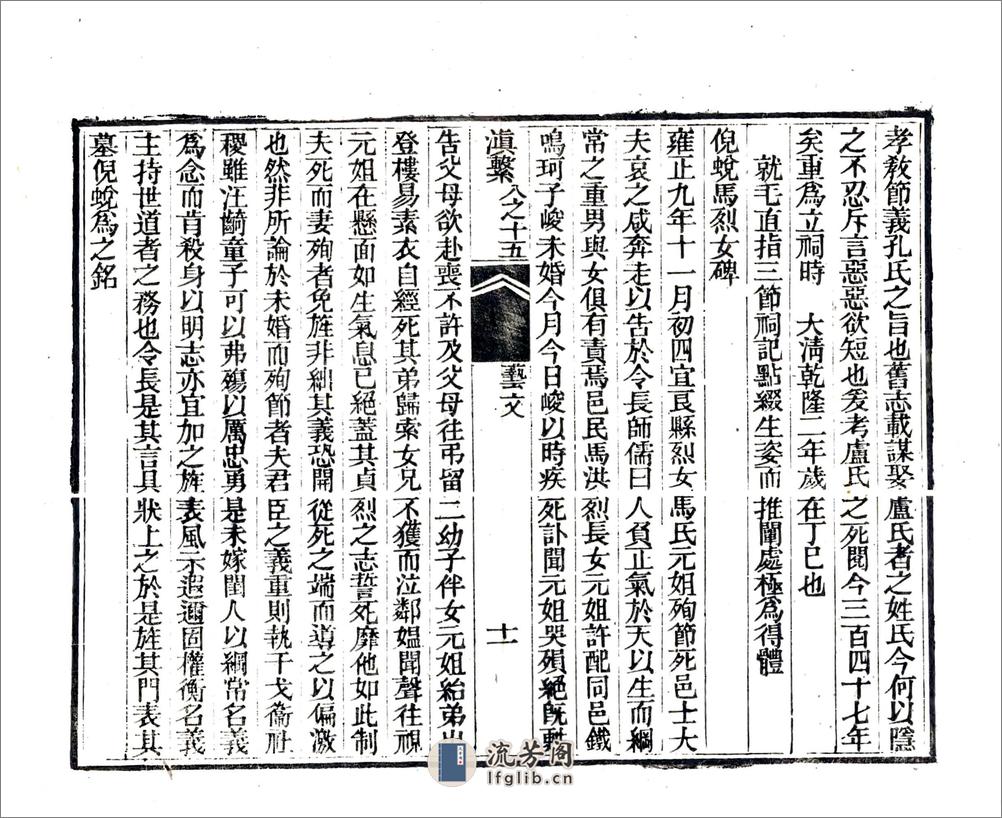 孝敎節義孔氏之旨也舊志載謀娶盧氏者之姓氏今何以隱
之不忍斥言惡惡欲短也爰考盧氏之死閱今三百四十七年
矣重爲立祠時　大淸乾隆二年歲在丁巳也
就毛直指三節祠記點綴生姿而推闡處極爲得體
倪蛻馬烈女碑
雍正九年十一月初四宜良縣烈女馬氏元姐殉節死邑士大
夫哀之咸奔走以告於令長師儒曰人負正氣於天以生而綱
常之重男與女俱有責焉邑民馬洪烈長女元姐許配同邑鐵
鳴珂子峻未婚今月今日峻以時疾死訃聞元姐哭殞絕旣甦
滇繫　八之十五　藝文　十一
告父母欲赴喪不許及父母往弔留二幼子伴女元姐紿弟出
登樓易素衣自經死其弟歸索女兄不獲而泣鄰媼聞聲往視
元姐在懸面如生氣息已絕蓋其貞烈之志誓死靡他如此制
夫死而妻殉者免旌非絀其義恐開從死之端而導之以偏激
也然非所論於未婚而殉節者夫君臣之義重則執干戈衞社
稷雖汪踦童子可以弗殤以厲忠勇是未嫁閨人以綱常名義
爲念而肯殺身以明志亦宜加之旌表風示遐邇固權衡名義
主持世道者之務也令長是其言具狀上之於是旌其門表其
墓倪蛻爲之銘
流芳閣
lfglib.cn